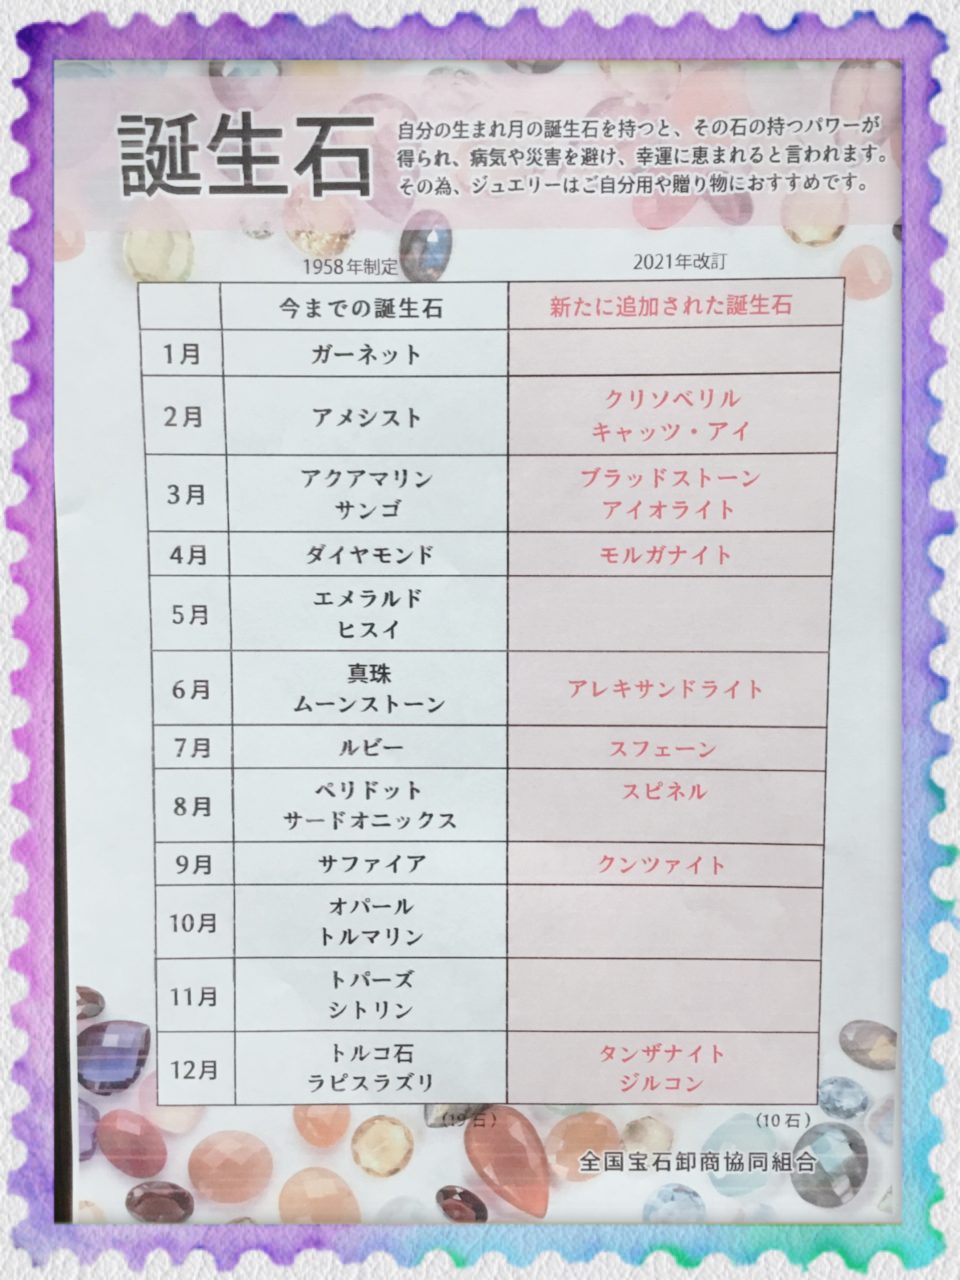 誕生石
自分の生まれ月の誕生石を持つと、その石の持つパワーが
得られ、病気や災害を避け、幸運に恵まれると言われます。
その為、ジュエリーはご自分用や贈り物におすすめです。
1958年制定
2021年改訂
今までの誕生石
新たに追加された誕生石
1月
ガーネット
2月
アメシスト
クリソベリル
キャッツ・アイ
3月
アクアマリン
サンゴ
ブラッドストーン
アイオライト
4月
ダイヤモンド
モルガナイト
5月
エメラルド
ヒスイ
6月
真珠
ムーンストーン
アレキサンドライト
7月
ルビー
スフェーン
8月
ペリドット
サードオニックス
スピネル
9月
サファイア
クンツァイト
10月
オパール
トルマリン
11月
トパーズ
シトリン
12月
トルコ石
ラピスラズリ
タンザナイト
ジルコン
(19石)
(10石)
全国宝石卸商協同組合